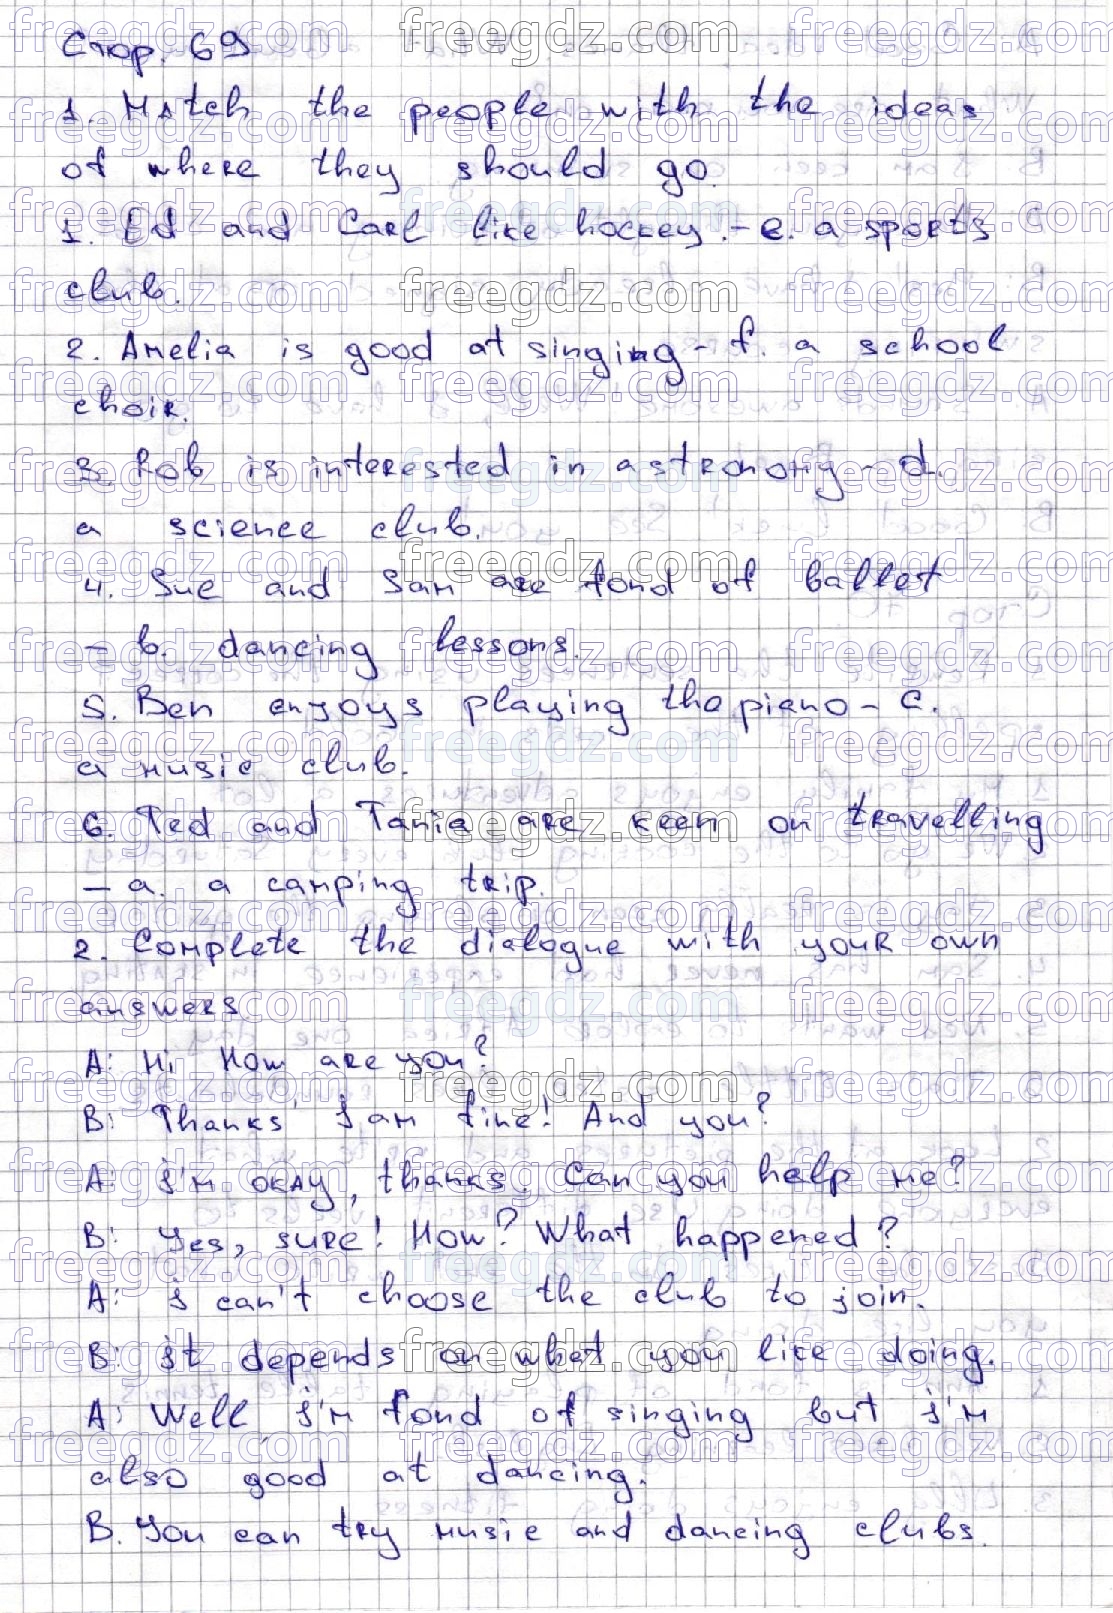 Стор. 69
1. Match the people with the ideas
of where they should go.
1. Ed and Carl like hockey. - e. a sports
club.
2. Amelia is good at singing - f. a school
choir.
3. Rob is interested in astronomy - d.
a science club.
4. Sue and Sam are fond of ballet
- b. dancing lessons.
5. Ben enjoys playing the piano - c.
a music club.
6. Ted and Tania are keen on travelling
- a. a camping trip.
2. Complete the dialogue with your own
answers.
A: Hi How are you?
B: Thanks' I am fine! And you?
A: I'm okay, thanks. Can you help me?
B: Yes, sure! How? What happened?
A: I can't choose the club to join.
B: It depends on what you like doing.
A: Well, I'm fond of singing but I'm
also good at dancing.
B. You can try music and dancing clubs.
freegdz.com